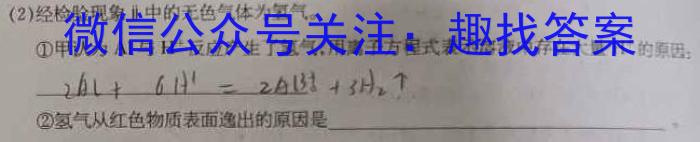 (2)经检验现象 中的无色气体为氢气。
微信公众号关注:趣找答案
①甲 反应产生了氢气,用离子方程式表 存在 的原因:
2Al + 6H⁺ = 2Al³⁺ + 3H₂↑
②氢气从红色物质表面逸出的原因是